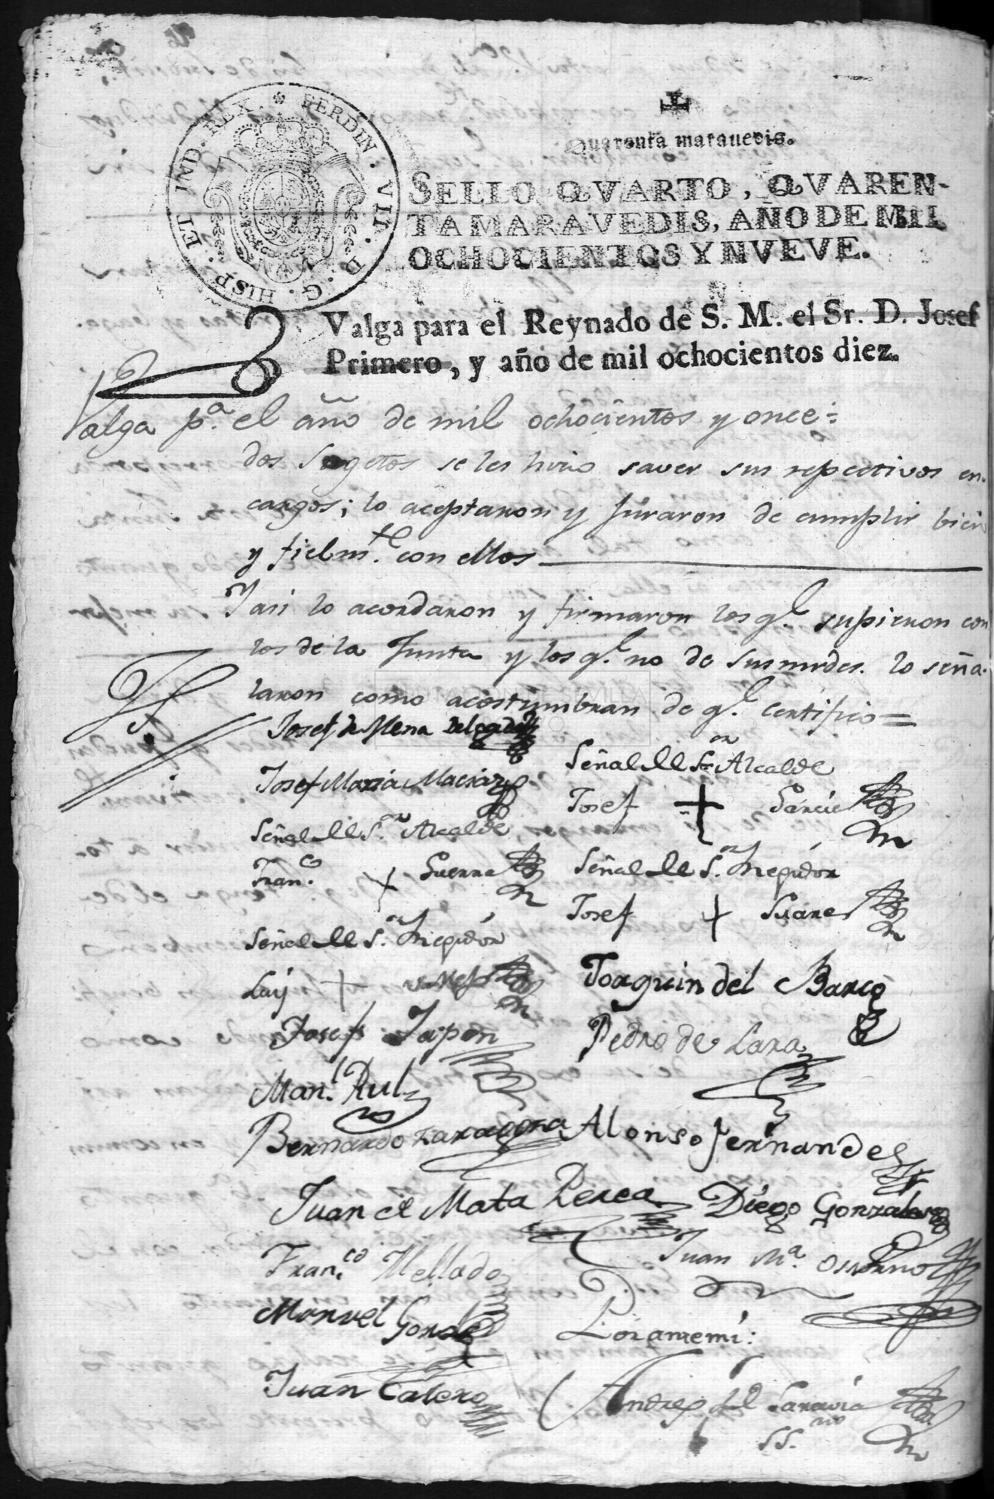 HISP. ET IND. REX. FERDIN. VII. D. G.
Quarenta maravedis.
SELLO QVARTO, QVAREN-
TA MARAVEDIS, AÑO DE MIL
OCHOCIENTOS Y NVEVE.
Valga para el Reynado de S. M. el Sr. D. Josef
Primero, y año de mil ochocientos diez.
Valga p.a el año de mil ochocientos y once=
dos Sugetos se les hizo saver sus repectivos en-
cargos; lo aceptaron y juraron de cumplir bien
y fielm.te con ellos
Y asi lo acordaron y firmaron los q.e supieron con
los de la Junta y los q.e no de sus mrdes. lo seña-
laron como acostumbran de q.e certifico=
Josef de Mena Delgado
Josef Maria Macias
Señal del S.or Alcalde
Josef + Garcia
Señal del S.or Alcalde
Fran.co + Guerra
Señal del S.or Regidor
Josef + Suarez
Señal del S.or Regidor
Luis +
Joaquin del Barco
Josef Japon
Pedro de Lara
Man.l Rul
Bernardo Zaragoza
Alonso Fernandez
Juan de Mata Perea
Diego Gonzales
Fran.co Mellado
Juan M.a Osorno
Manuel Gonz
Por ante mi:
Juan Calero
Andres
SS.no